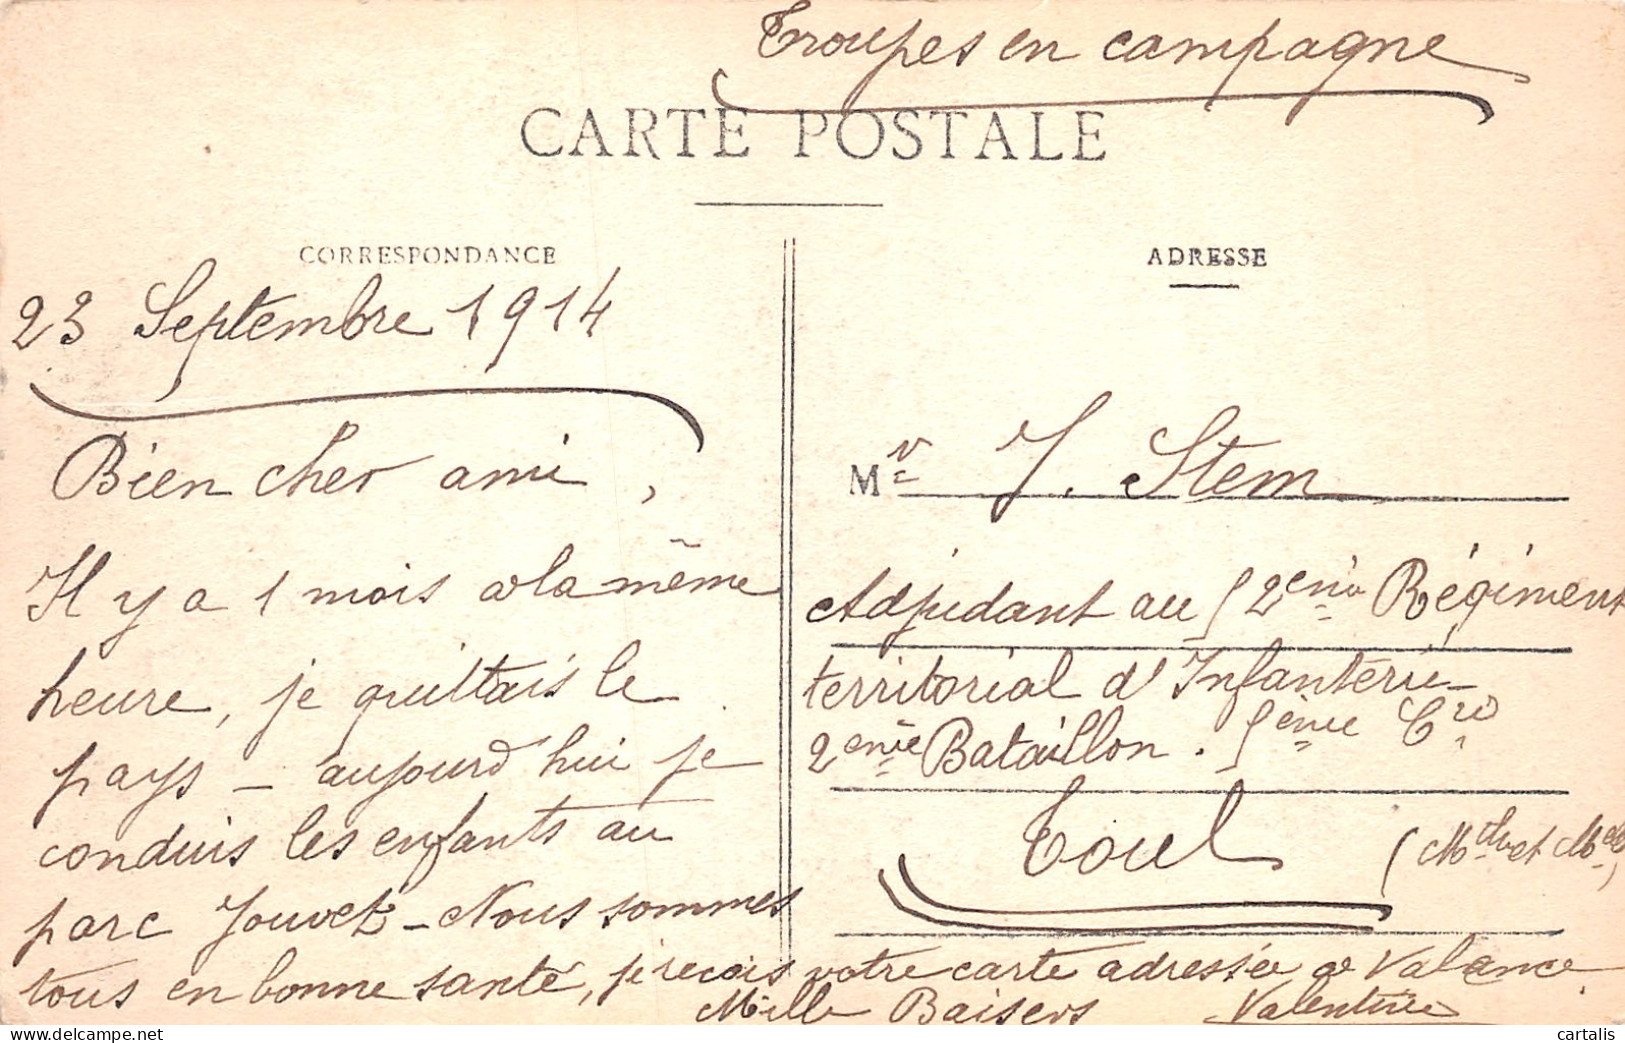 Troupes en campagne
CARTE POSTALE
CORRESPONDANCE
23 Septembre 1914
Bien cher ami,
Il y a 1 mois a la même
heure, je quittais le
pays - aujourd'hui je
conduis les enfants au
parc Jouvet - Nous sommes
tous en bonne santé, je recois votre carte adressée de Valence
Mille Baisers Valentine
ADRESSE
Mr J. Stem
Adjudant au 52eme Régiment
territorial d'Infanterie
2eme Bataillon. 5ème Cie
Toul (Mthe et Mlle)
cartalis